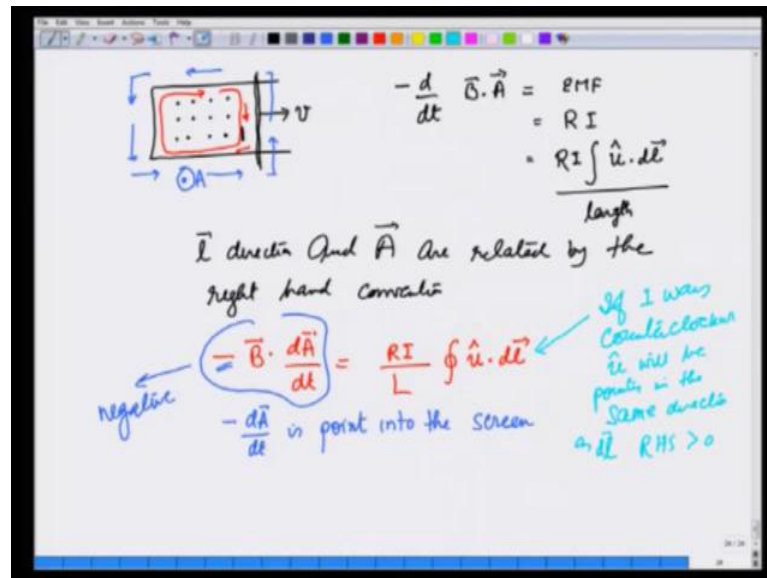 File Edit View Insert Actions Tools Help
v
⊙A
-d/dt B⃗.A⃗ = EMF
= RI
= RI∫û.dl⃗
length
l⃗ direction and A⃗ are related by the
right hand convention
- B⃗. dA⃗/dt = RI/L ∮û.dl⃗
negative
-dA⃗/dt is point into the screen
If I was
Counterclockwise
û will be
pointing in the
same direction
as dl⃗ RHS > 0